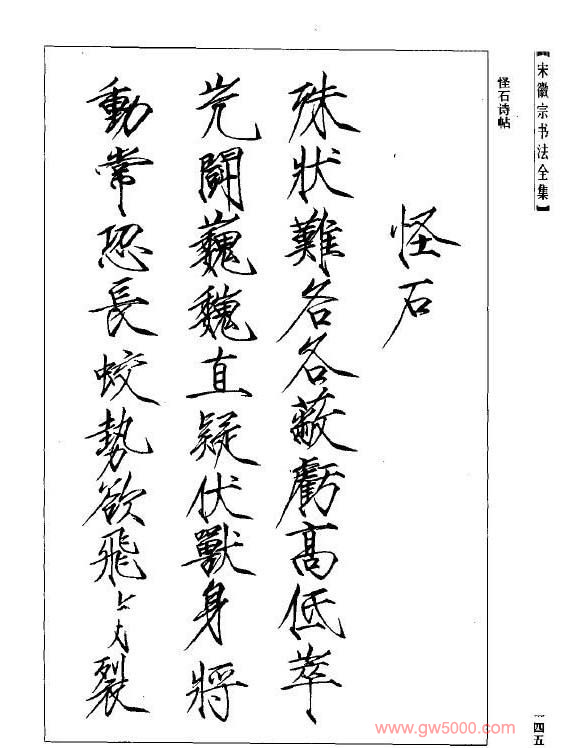 【宋徽宗书法全集】
怪石诗帖
怪石
殊狀難名各蔽虧高低崒
屼鬪巍巍直疑伏獸身將
動常恐長蛟勢欲飛裂
一四五
www.gw5000.com